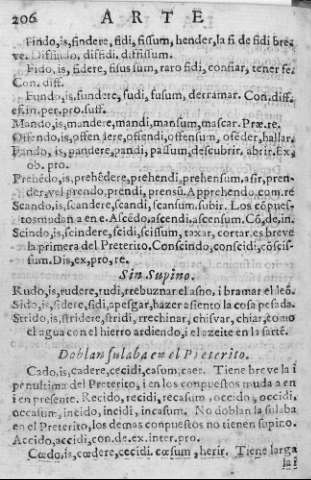 206 ARTE
Findo,is,findere, fidi, fissum, hender, la fi de fidi bre
ve. Diffindo, diffidi, diffissum.
Fido, is, fidere, fisus sum, raro fidi, confiar, tener fe.
Con. diff.
Fundo, is, fundere, fudi, fusum, derramar. Con. diff.
ef. in. per. pro. suff.
Mando, is, mandere, mandi, mansum, mascar. Præ. re.
Offendo, is, offendere, offendi, offensum, ofẽder, hallar.
Pando, is, pandere, pandi, passum, descubrir. abrir. Ex,
ob. pro.
Prehẽdo, is, prehẽdere, prehendi, prehensum, asir, pren-
der, vel prendo, prendi, prensũ. Apprehendo. com. re
Scando, is, scandere, scandi, scansum. subir. Los cõpues-
tos mudan a en e. Ascẽdo, ascendi, ascensum. Cõ, de, in.
Scindo, is, scindere, scidi, scissum, taxar, cortar. es breve
la primera del Preterito. Conscindo, conscidi, cõscis-
sum. Dis, ex, pro, re.
Sin Supino.
Rudo, is, rudere, rudi, rebuznar el asno, i bramar el leõ.
Sido, is, sidere, sidi, apesgar, hazer asiento la cosa pesada.
Strido, is, stridere, stridi, rrechinar, chisvar, chiar, como
el agua con el hierro ardiendo, i el azeite en la sartẽ.
Doblan sulaba en el Preterito.
Cado, is, cadere, cecidi, casum, caer. Tiene breve la i
penultima del Preterito, i en los conpuestos muda a en
i en presente. Recido, recidi, recasum, occido, occidi,
occasum, incido, incidi, incasum. No doblan la sulaba
en el Preterito, los demas conpuestos no tienen supino.
Accido, accidi, con. de. ex. inter. pro.
Cœdo, is, cœdere, cecidi. cœsum, herir. Tiene larga
la i